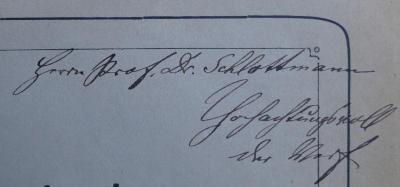 Herrn Prof. Dr. Schlottmann
Hochachtungsvoll
der Verf.